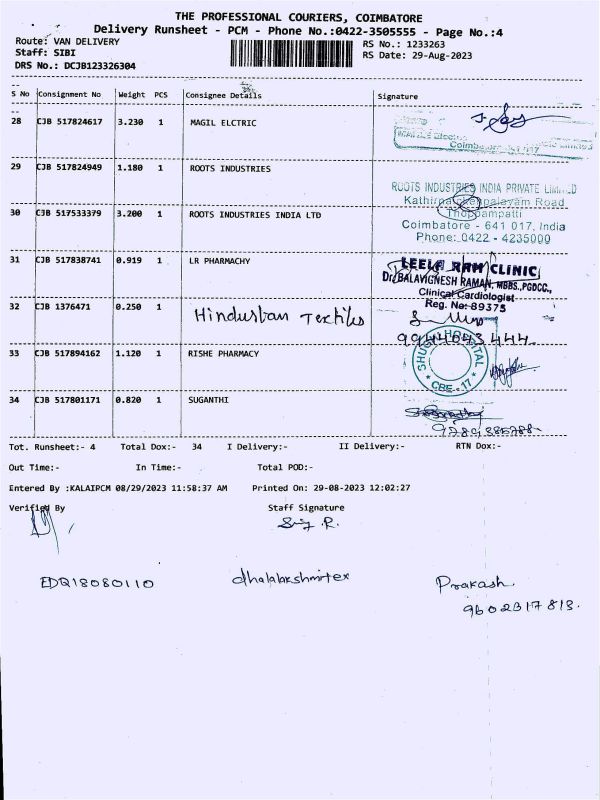 THE PROFESSIONAL COURIERS, COIMBATORE
Delivery Runsheet - PCM - Phone No.:0422-3505555 - Page No.:4
Route: VAN DELIVERY RS No.: 1233263
Staff: SIBI RS Date: 29-Aug-2023
DRS No.: DCJB123326304
S No Consignment No Weight PCS Consignee Details Signature
28 CJB 517824617 3.230 1 MAGIL ELCTRIC
29 CJB 517824949 1.180 1 ROOTS INDUSTRIES
ROOTS INDUSTRIES INDIA PRIVATE LIMITED
Thoppampatti
30 CJB 517533379 3.200 1 ROOTS INDUSTRIES INDIA LTD
Coimbatore - 641 017, India
Phone: 0422 - 4235000
31 CJB 517838741 0.919 1 LR PHARMACHY
LEELA RAM CLINIC
Dr. BALAVIGNESH RAMAN, MBBS., PGDCC.,
Clinical Cardiologist
Reg. No: 89375
32 CJB 1376471 0.250 1 Hindustan Textiles
33 CJB 517894162 1.120 1 RISHE PHARMACY
HOSPITAL
CBE - 17
34 CJB 517801171 0.820 1 SUGANTHI
Tot. Runsheet:- 4 Total Dox:- 34 I Delivery:- II Delivery:- RTN Dox:-
Out Time:- In Time:- Total POD:-
Entered By :KALAIPCM 08/29/2023 11:58:37 AM Printed On: 29-08-2023 12:02:27
Verified By Staff Signature
EDQ18080110 dhalabkshmitex Prakash.